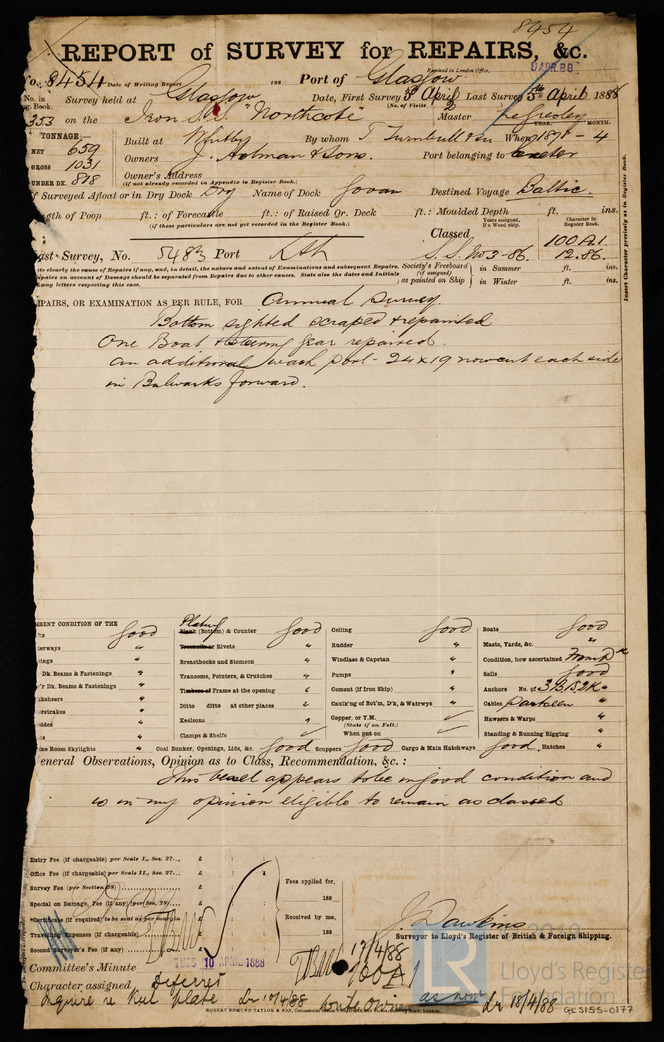 8454
REPORT of SURVEY for REPAIRS, &c.
No. 8454 Date of Writing Report 188 Port of Glasgow Received in London Office, 9 APR 88
No. in Survey held at Glasgow Date, First Survey 3rd April Last Survey 5th April 1888
g. Book. (No. of Visits 2
353 on the Iron S.S. "Northcote" Master
TONNAGE Built at Whitby By whom T Turnbull & Son When 187 - 4
YEAR. MONTH.
NET 659 Owners J. Holman & Sons. Port belonging to Exeter
GROSS 1031 Owner's Address
(if not already recorded in Appendix to Register Book.)
UNDER DK. 818
If Surveyed Afloat or in Dry Dock Dry Name of Dock Govan Destined Voyage Baltic.
ngth of Poop ft.: of Forecastle ft.: of Raised Qr. Deck ft.: Moulded Depth ft. ins.
(if these particulars are not yet recorded in the Register Book.)
Years assigned, if a Wood ship. Character in Register Book.
Classed 100A1.
ast Survey, No. 5483 Port Lth S.S. No 3-86. 12.86.
Insert Character precisely as in Register Book.
te clearly the cause of Repairs if any, and, in detail, the nature and extent of Examinations and subsequent Repairs.
epairs on account of Damage should be separated from Repairs due to other causes. State also the dates and Initials
any letters respecting this case.
Society's Freeboard (if assigned) as painted on Ship
in Summer ft. ins.
in Winter ft. ins.
EPAIRS, OR EXAMINATION AS PER RULE, FOR Annual Survey
Bottom sighted scraped & repainted
One Boat & Steering gear repaired.
An additional wash port 24 x 19 now cut each side
in Bulwarks forward.
SENT CONDITION OF THE
good
terways "
Dk. Beams & Fastenings "
r Dk. Beams & Fastenings "
ne Room Skylights "
Plating
Plank (Bottom) & Counter good
Treenails or Rivets "
Breasthooks and Stemson "
Transoms, Pointers, & Crutches "
Timbers of Frame at the opening "
Ditto ditto at other places "
Keelsons "
Clamps & Shelfs
Coal Bunker, Openings, Lids, &c. good Scuppers good Cargo & Main Hatchways good. Hatches "
Ceiling good
Rudder "
Windlass & Capstan "
Pumps "
Cement (if Iron Ship) "
Caulk'ng of Bot'm, D'k, & Watrwys "
Copper, or Y.M.
(State if on Felt.)
When put on
Boats good
Masts, Yards, &c. "
Condition, how ascertained
Sails good
Anchors No. of 3B.1S.2K "
Cables
Hawsers & Warps "
Standing & Running Rigging "
General Observations, Opinion as to Class, Recommendation, &c.:
This vessel appears to be in good condition and
is in my opinion eligible to remain as classed
Entry Fee (if chargeable) per Scale I., Sec. 27... £ : :
Office Fee (if chargeable) per Scale II., Sec. 27... £ : :
Survey Fee (per Section 28) £ : :
Special on Damage, Fee (if any) (per Sec. 28) £ : :
*Certificate (if required) to be sent as per margin £ : :
Travelling Expenses (if chargeable) £ : :
Second Surveyor's Fee (if any) £ : :
Fees applied for, 188
Received by me, 188
J. Dawkins
Surveyor to Lloyd's Register of British & Foreign Shipping.
Committee's Minute TUES 10 APRIL 1888 17/4/88
Character assigned Deferred 100A1
as now
18/4/88
Inquire re Keel plate 10/4/88 Write Owner
© 2019
LR
Lloyd's Register
Foundation
GLS155-0177